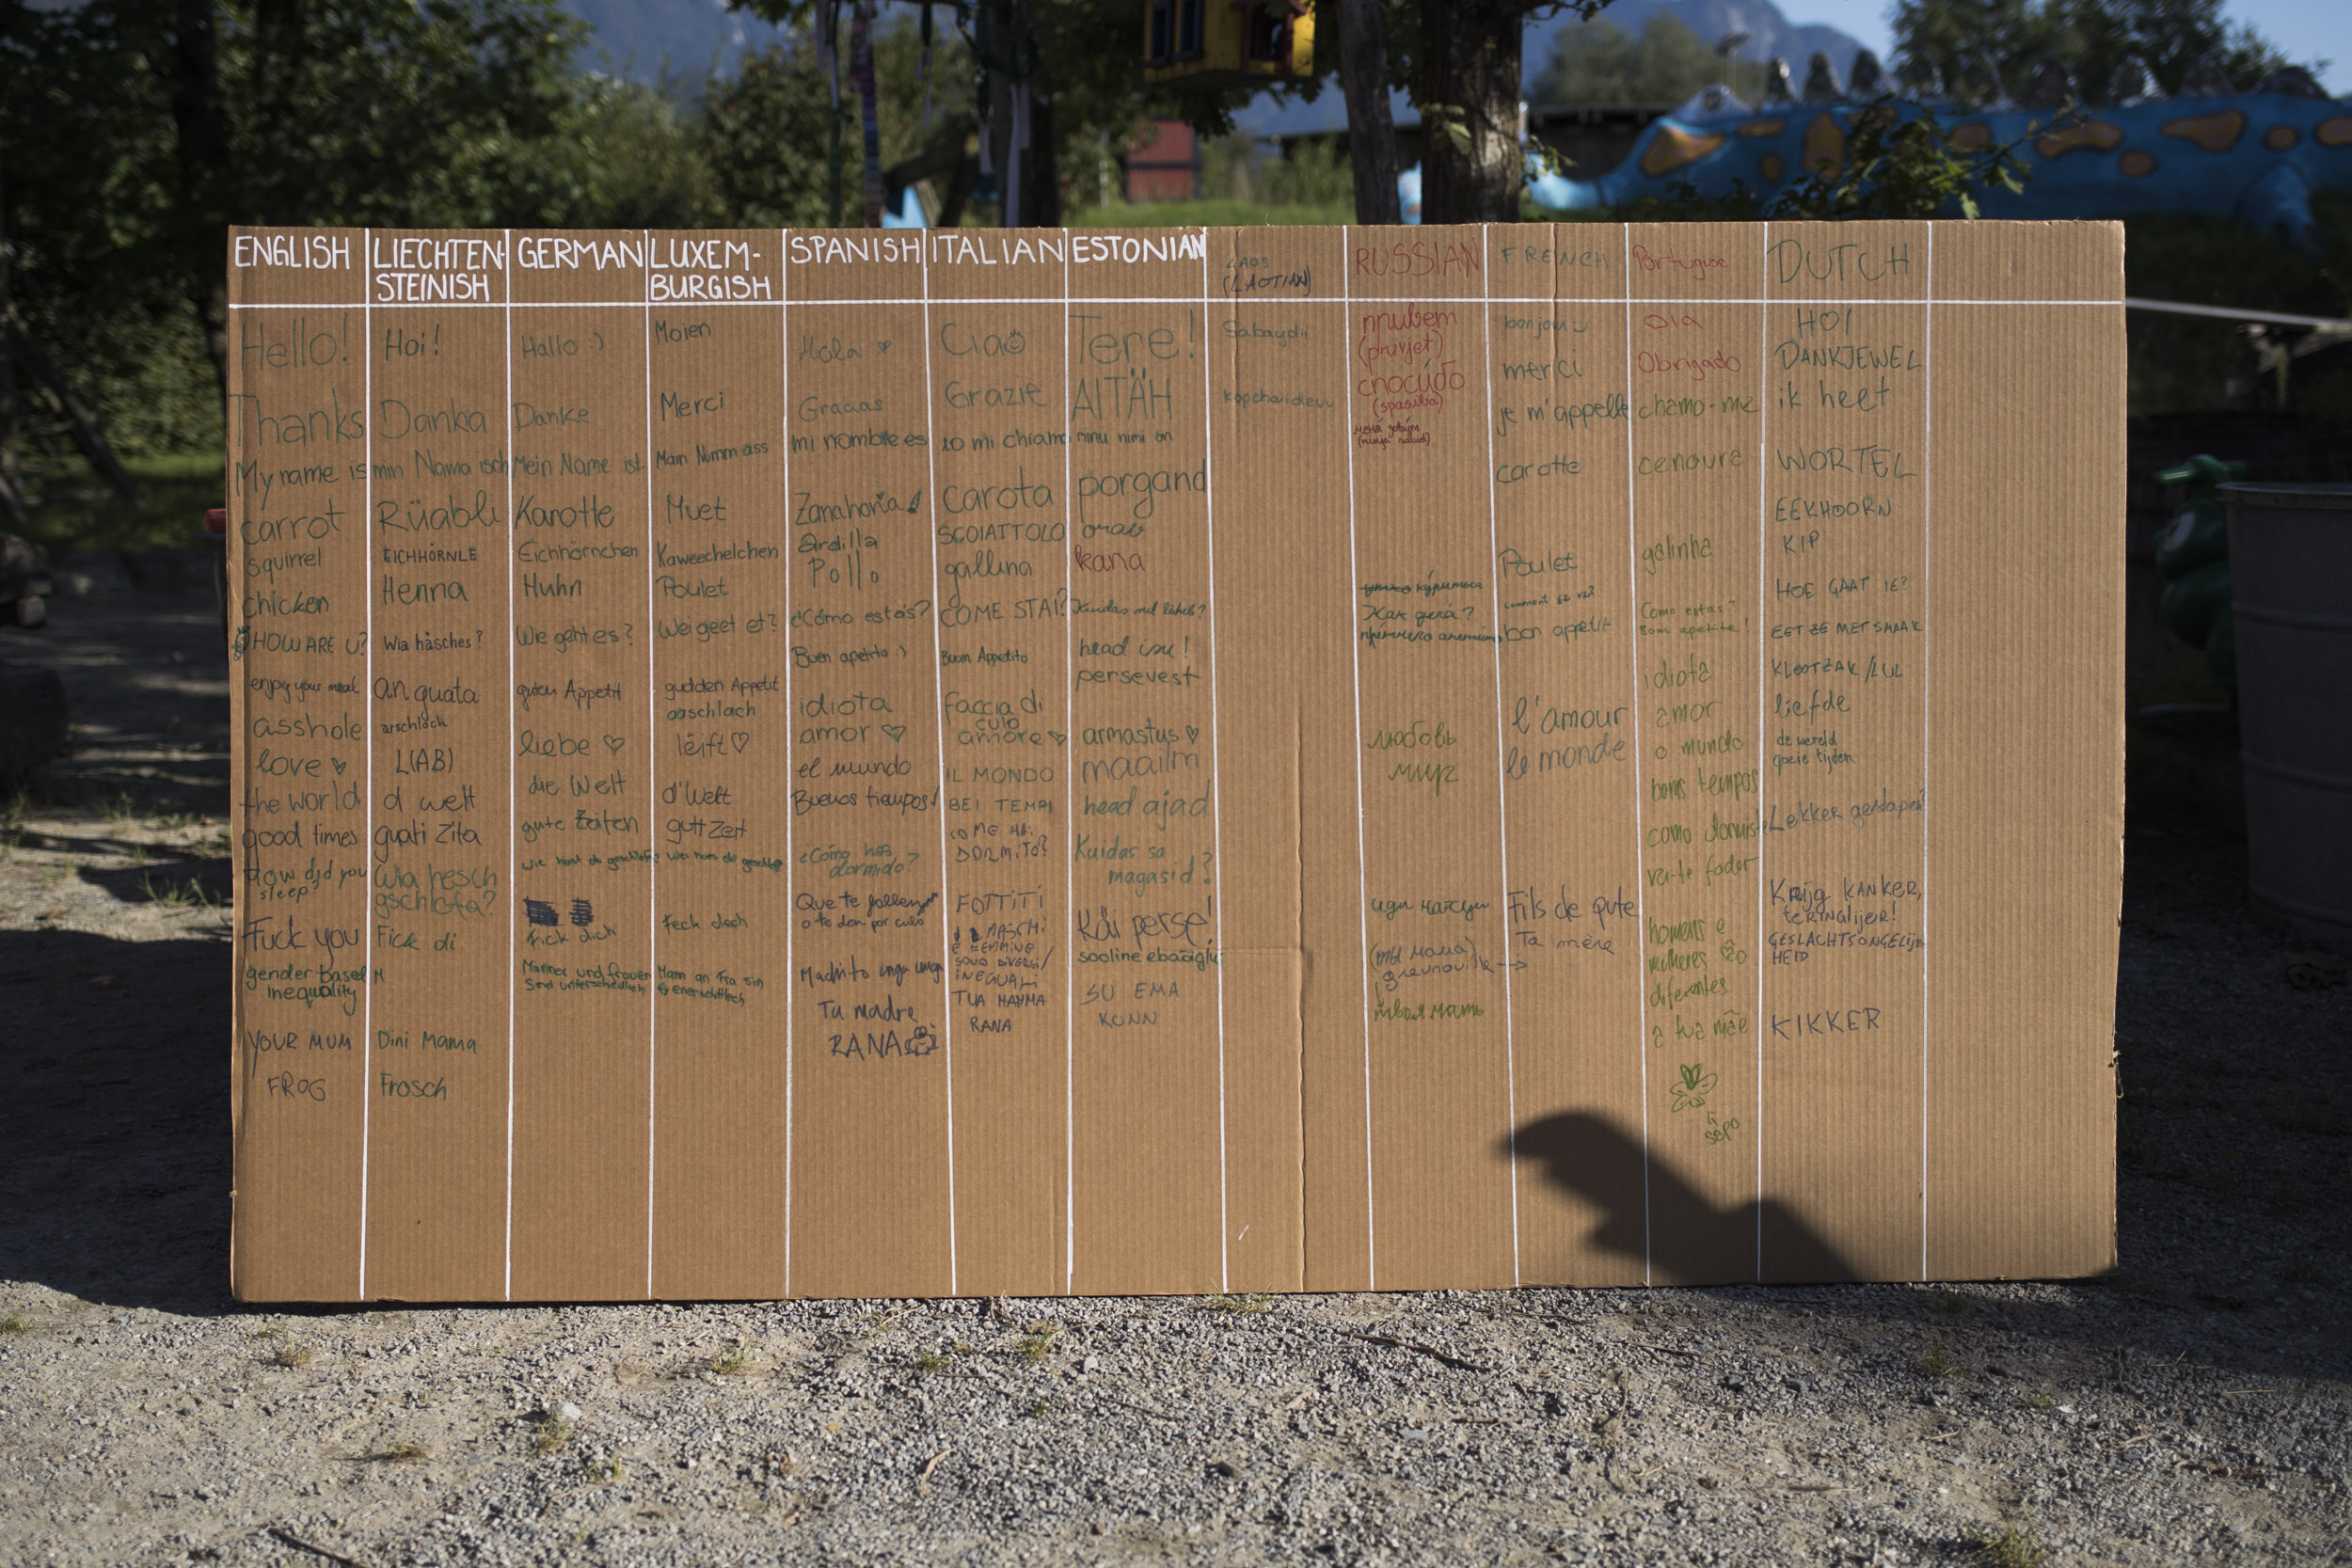 ENGLISH
Hello!
Thanks
My name is
carrot
squirrel
chicken
HOW ARE U?
enjoy your meal
asshole
love
the world
good times
How did you
sleep?
Fuck you
gender based
inequality
YOUR MUM
FROG
LIECHTEN-
STEINISH
Hoi!
Danka
min Nama isch
Rüabli
EICHHÖRNLE
Henna
Wia häsches?
an guata
arschloch
L(AB)
d welt
guati Zita
Wia hesch
gschlofa?
Fick di
M
Dini Mama
Frosch
GERMAN
Hallo :)
Danke
Mein Name ist
Karotte
Eichhörnchen
Huhn
Wie geht es?
guten Appetit
liebe
die Welt
gute Zeiten
wie hast du geschlafen?
Fick dich
Männer und frauen
sind unterschiedlich
LUXEM-
BURGISH
Moien
Merci
Main Numm ass
Muet
Kaweechelchen
Poulet
Wei geet et?
gudden Appetit
aaschlach
léift
d'Welt
gutt Zeit
Feck dech
Mann an Fra sin
SPANISH
Hola
Graaas
mi nombre es
Zanahoria
Ardilla
Pollo
¿Cómo estás?
Buen apetito :)
idiota
amor
el mundo
Buenos tiempos!
¿Cómo has
dormido?
Que te follen
o te den por culo
Machito unga unga
Tu madre
RANA
ITALIAN
Ciao
Grazie
io mi chiamo
carota
SCOIATTOLO
gallina
COME STAI?
Buon Appetito
faccia di
culo
amore
IL MONDO
BEI TEMPI
COME HAI
DORMITO?
FOTTITI
I MASCHI
E FEMMINE
SONO DIVERSI/
INEGUALI
TUA MAMMA
RANA
ESTONIAN
Tere!
AITÄH
minu nimi on
porgand
orav
kana
Kuidas sul läheb?
head isu!
persevest
armastus
maailm
head ajad
Kuidas sa
magasid?
Käi perse!
sooline ebaõiglu
SU EMA
KONN
LAOS
(LAOTIAN)
Sabaydii
kopchaideuu
RUSSIAN
привет
(privjet)
спосибо
(spasiba)
Как дела?
любовь
мир
иди нахуи
твоя мать
FRENCH
bonjour
merci
je m'appelle
carotte
Poulet
comment ça va?
bon appetit
l'amour
le monde
Fils de pute
Ta mère
Portuguese
Ola
Obrigado
chamo-me
cenoura
galinha
Como estas?
Bom apetite!
idiota
amor
o mundo
bons tempos
como dormiste
vai-te foder
homens e
mulheres são
diferentes
a tua mãe
sapo
DUTCH
HOI
DANKJEWEL
ik heet
WORTEL
EEKHOORN
KIP
HOE GAAT IE?
EET ZE MET SMAAK
KLOOTZAK/LUL
liefde
de wereld
goeie tijden
Lekker geslapen?
Krijg KANKER,
teringlijer!
GESLACHTSONGELIJK
HEID
KIKKER